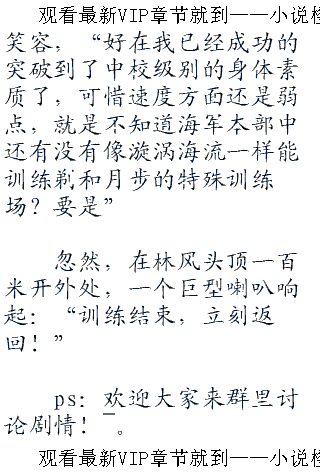 观看最新VIP章节就到——小说检
笑容，“好在我已经成功的
突破到了中校级别的身体素
质了，可惜速度方面还是弱
点，就是不知道海军本部中
还有没有像漩涡海流一样能
训练剃和月步的特殊训练
场？要是”
忽然，在林风头顶一百
米开外处，一个巨型喇叭响
起：“训练结束，立刻返
回！”
ps：欢迎大家来群里讨
论剧情！_。
观看最新VIP章节就到——小说检